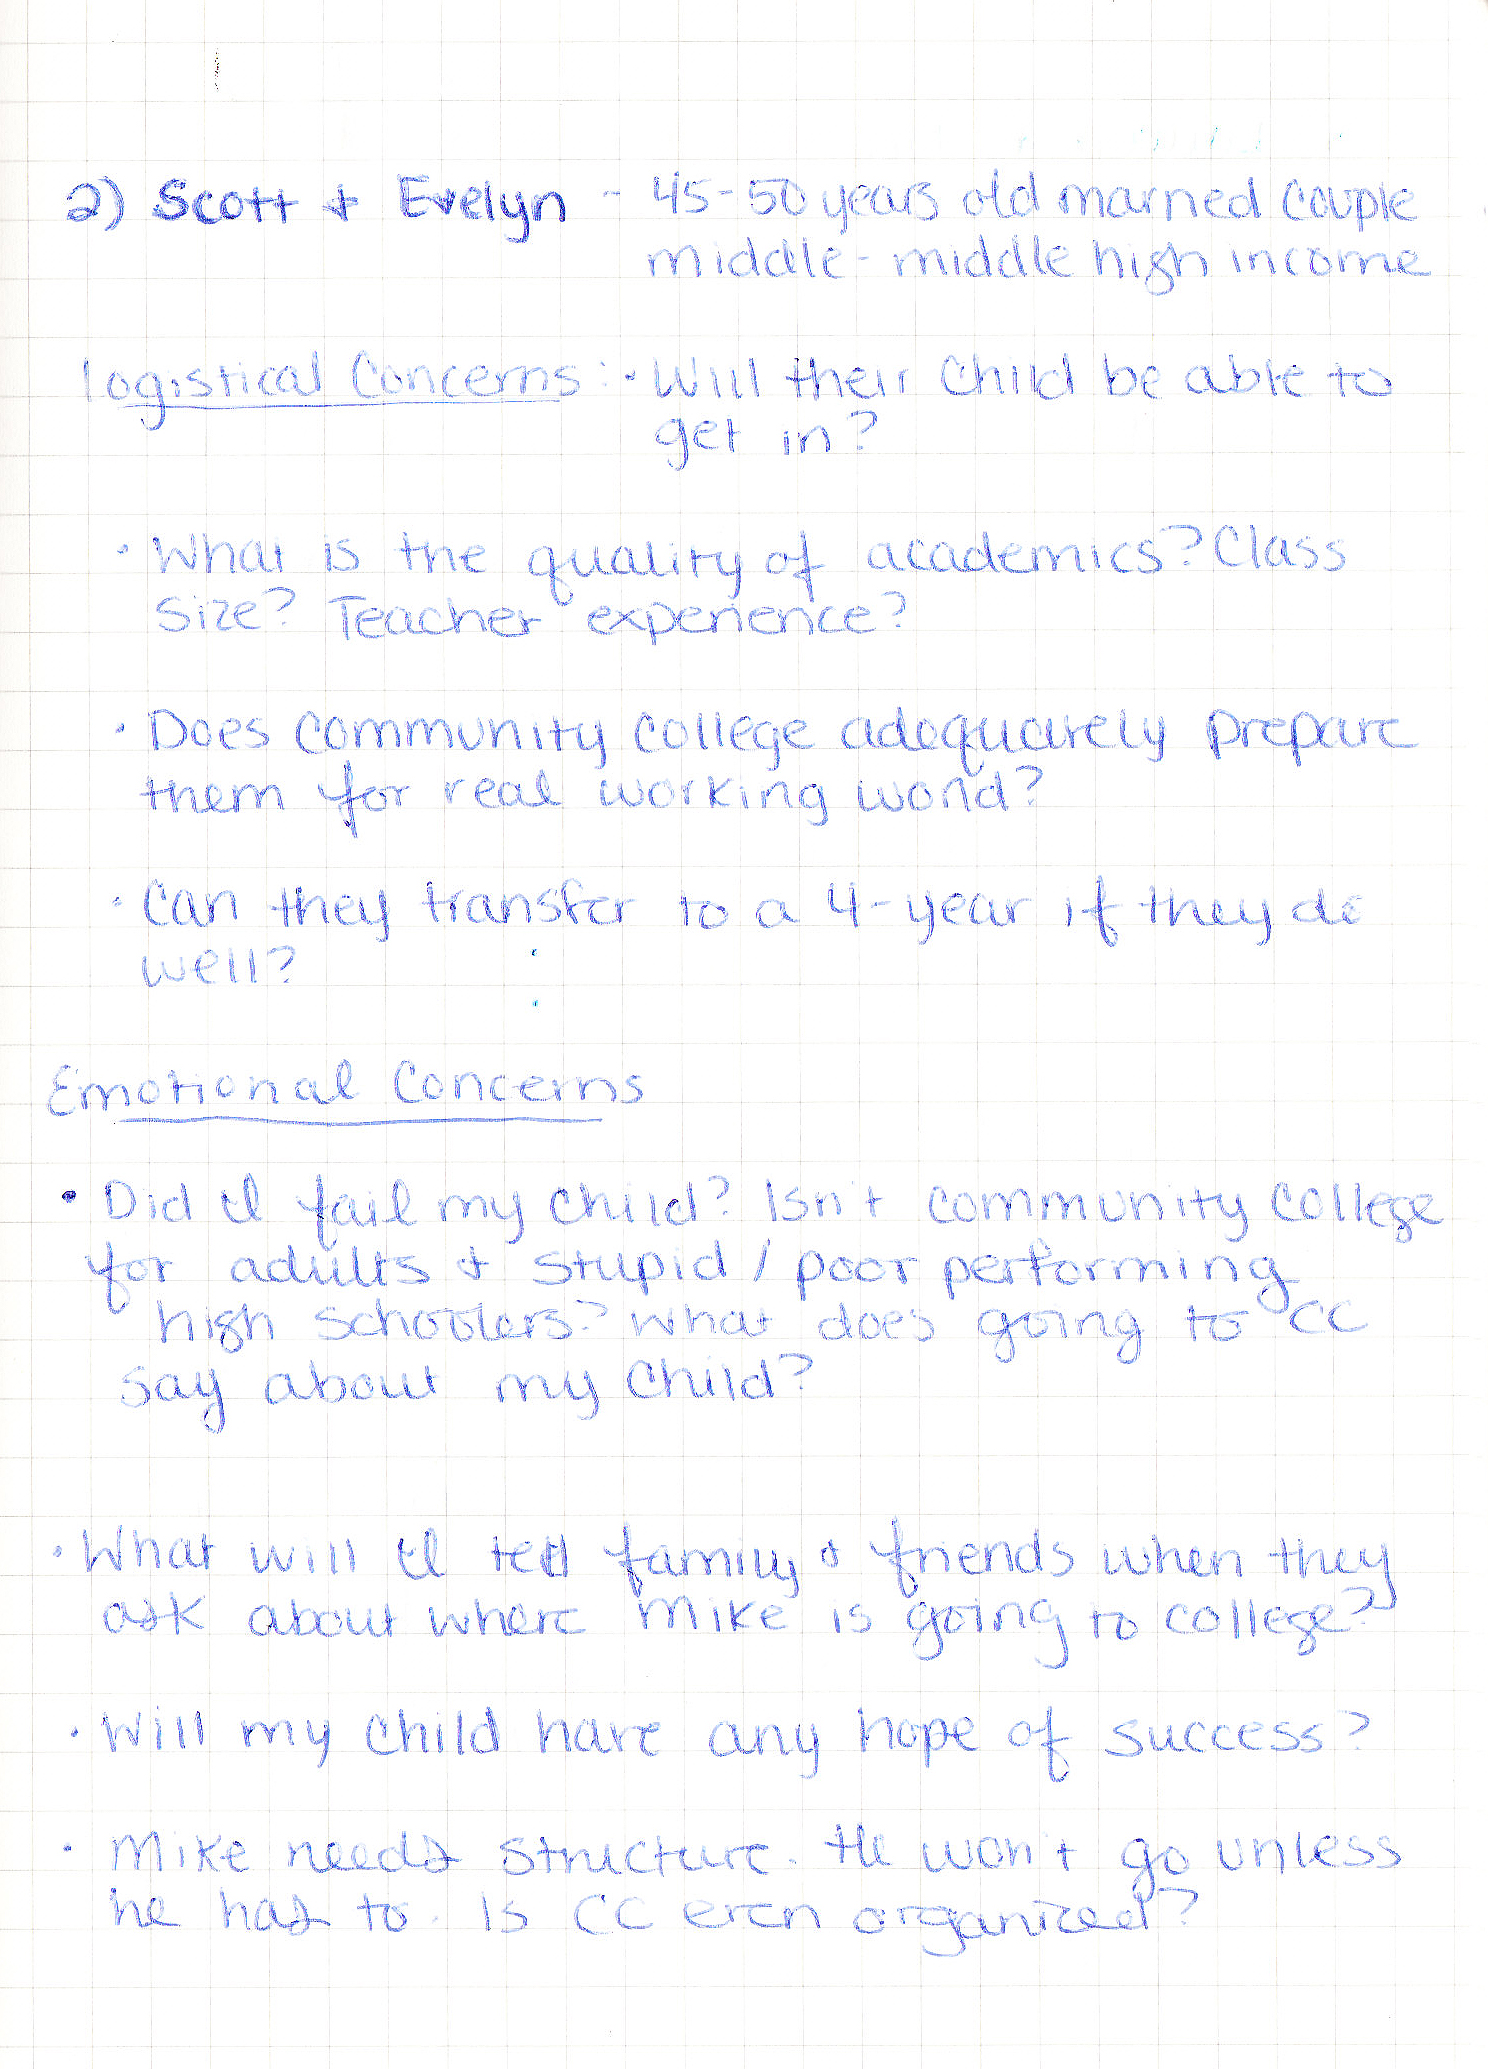 2) Scott + Evelyn - 45-50 years old married couple
middle - middle high income
Logistical Concerns: • Will their child be able to
get in?
• What is the quality of academics? Class
size? Teacher experience?
• Does community college adequately prepare
them for real working world?
• Can they transfer to a 4-year if they do
well?
Emotional Concerns
• Did I fail my child? Isn't community college
for adults + stupid / poor performing
high schoolers? What does going to CC
say about my child?
• What will I tell family + friends when they
ask about where Mike is going to college?
• Will my child have any hope of success?
• Mike needs structure. He won't go unless
he has to. Is CC even organized?